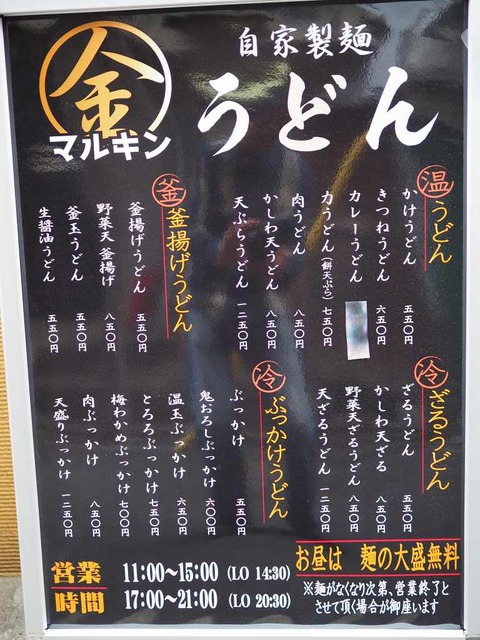 金
マルキン
自家製麺
うどん
温 うどん
かけうどん 五五〇円
きつねうどん 六五〇円
カレーうどん
力うどん(餅天ぷら) 七五〇円
肉うどん 八五〇円
かしわ天うどん 八五〇円
天ぷらうどん 一二五〇円
釜 釜揚げうどん
釜揚げうどん 五五〇円
野菜天釜揚げ 八五〇円
釜玉うどん 五五〇円
生醤油うどん 五五〇円
冷 ざるうどん
ざるうどん 五五〇円
かしわ天ざる 八五〇円
野菜天ざるうどん 八五〇円
天ざるうどん 一二五〇円
冷 ぶっかけうどん
ぶっかけ 五五〇円
鬼おろしぶっかけ 六〇〇円
温玉ぶっかけ 六五〇円
とろろぶっかけ 七五〇円
梅わかめぶっかけ 七〇〇円
肉ぶっかけ 八五〇円
天盛りぶっかけ 一二五〇円
営業時間
11:00~15:00 (LO 14:30)
17:00~21:00 (LO 20:30)
お昼は 麺の大盛無料
※麺がなくなり次第、営業終了と
させて頂く場合が御座います